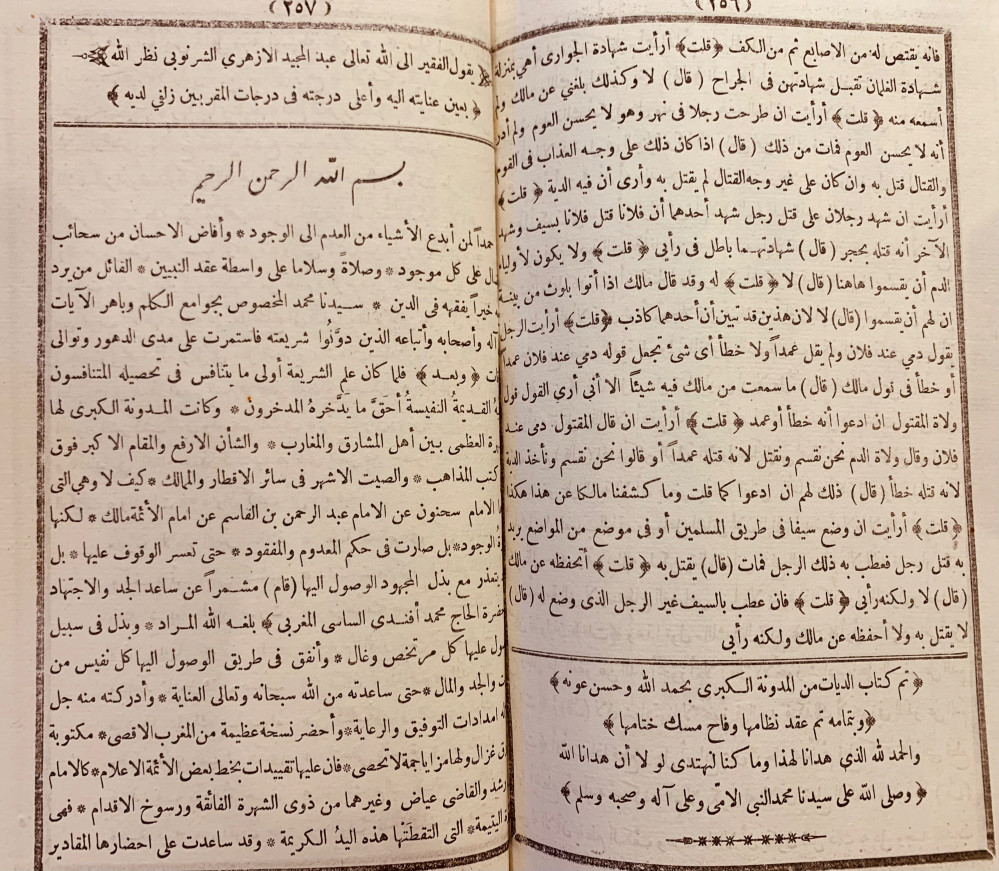 (٢٥٦)
فانه يقتص له من الاصابع ثم من الكف ﴿قلت﴾ أرأيت شهادة الجوارى أهي بمنزلة
شهادة الغلمان تقبل شهادتهن فى الجراح (قال) لا وكذلك بلغني عن مالك ولم
أسمعه منه ﴿قلت﴾ أرأيت ان طرحت رجلا فى نهر وهو لا يحسن العوم ولم أدر
أنه لا يحسن العوم فمات من ذلك (قال) اذا كان ذلك على وجه العذاب فى القوم
والقتال قتل به وان كان على غير وجه القتال لم يقتل به وأرى أن فيه الدية ﴿قلت﴾
أرأيت ان شهد رجلان على قتل رجل شهد أحدهما أن فلانا قتل فلانا بسيف وشهد
الآخر أنه قتله بحجر (قال) شهادتهما باطل فى رأيي ﴿قلت﴾ ولا يكون لأولياء
الدم أن يقسموا هاهنا (قال) لا ﴿قلت﴾ له وقد قال مالك اذا أتوا بلوث من بينة
ان لهم أن يقسموا (قال) لا لان هذين قد تبين أن أحدهما كاذب ﴿قلت﴾ أرأيت الرجل
يقول دمي عند فلان ولم يقل عمداً ولا خطأ أى شئ تجعل قوله دمي عند فلان عمداً
أو خطأ فى قول مالك (قال) ما سمعت من مالك فيه شيئاً الا أني أري القول قول
ولاة المقتول ان ادعوا أنه خطأ أو عمد ﴿قلت﴾ أرأيت ان قال المقتول دمى عند
فلان وقال ولاة الدم نحن نقسم ونقتل لانه قتله عمداً أو قالوا نحن نقسم ونأخذ الدية
لانه قتله خطأ (قال) ذلك لهم ان ادعوا كما قلت وما كشفنا مالكا عن هذا هكذا
﴿قلت﴾ أرأيت ان وضع سيفا فى طريق المسلمين أو فى موضع من المواضع يريد
به قتل رجل فعطب به ذلك الرجل فمات (قال) يقتل به ﴿قلت﴾ أتحفظه عن مالك
(قال) لا ولكنه رأيي ﴿قلت﴾ فان عطب بالسيف غير الرجل الذى وضع له (قال)
لا يقتل به ولا أحفظه عن مالك ولكنه رأيي
﴿تم كتاب الديات من المدونة الكبرى بحمد الله وحسن عونه﴾
﴿وبتمامه تم عقد نظامها وفاح مسك ختامها﴾
والحمد لله الذى هدانا لهذا وما كنا لنهتدى لو لا أن هدانا الله
﴿وصلى الله على سيدنا محمد النبي الامّى وعلى آله وصحبه وسلم﴾
(٢٥٧)
يقول الفقير الى الله تعالى عبد المجيد الازهري الشرنوبي نظر الله
﴿بعين عنايته اليه وأعلى درجته فى درجات المقربين زلفي لديه﴾
بسم الله الرحمن الرحيم
حمداً لمن أبدع الأشياء من العدم الى الوجود * وأفاض الاحسان من سحائب
على كل موجود * وصلاةً وسلاما على واسطة عقد النبيين * القائل من يرد
خيراً يفقهه فى الدين * سيدنا محمد المخصوص بجوامع الكلم وباهر الآيات
آله وأصحابه وأتباعه الذين دوّنُوا شريعته فاستمرت على مدى الدهور وتوالى
﴿وبعد﴾ فلما كان علم الشريعة أولى ما يتنافس فى تحصيله المتنافسون
القديمةُ النفيسةُ أحقَّ ما يدَّخره المدخرون * وكانت المدونة الكبرى لها
العظمى بين أهل المشارق والمغارب * والشأن الارفع والمقام الاكبر فوق
كتب المذاهب * والصيت الاشهر فى سائر الاقطار والممالك * كيف لا وهي التى
الامام سحنون عن الامام عبد الرحمن بن القاسم عن امام الأئمة مالك * لكنها
الوجود * بل صارت فى حكم المعدوم والمفقود * حتى تعسر الوقوف عليها * بل
تعذر مع بذل المجهود الوصول اليها (قام) مشمراً عن ساعد الجد والاجتهاد
حضرة الحاج محمد أفندى الساسى المغربي﴾ بلغه الله المراد * وبذل فى سبيل
عليها كل مرتخص وغال * وأنفق فى طريق الوصول اليها كل نفيس من
والجد والمال * حتى ساعدته من الله سبحانه وتعالى العناية * وأدركته منه جل
امدادات التوفيق والرعاية * وأحضر نسخة عظيمة من المغرب الاقصى * مكتوبة
غزال ولها مزايا جمة لا تحصى * فان عليها تقييدات بخط بعض الأئمة الاعلام * كالامام
رشد والقاضى عياض وغيرهما من ذوى الشهرة الفائقة ورسوخ الاقدام * فهى
اليتيمة * التى التقطَتْها هذه اليدُ الكريمة * وقد ساعدت على احضارها المقادير